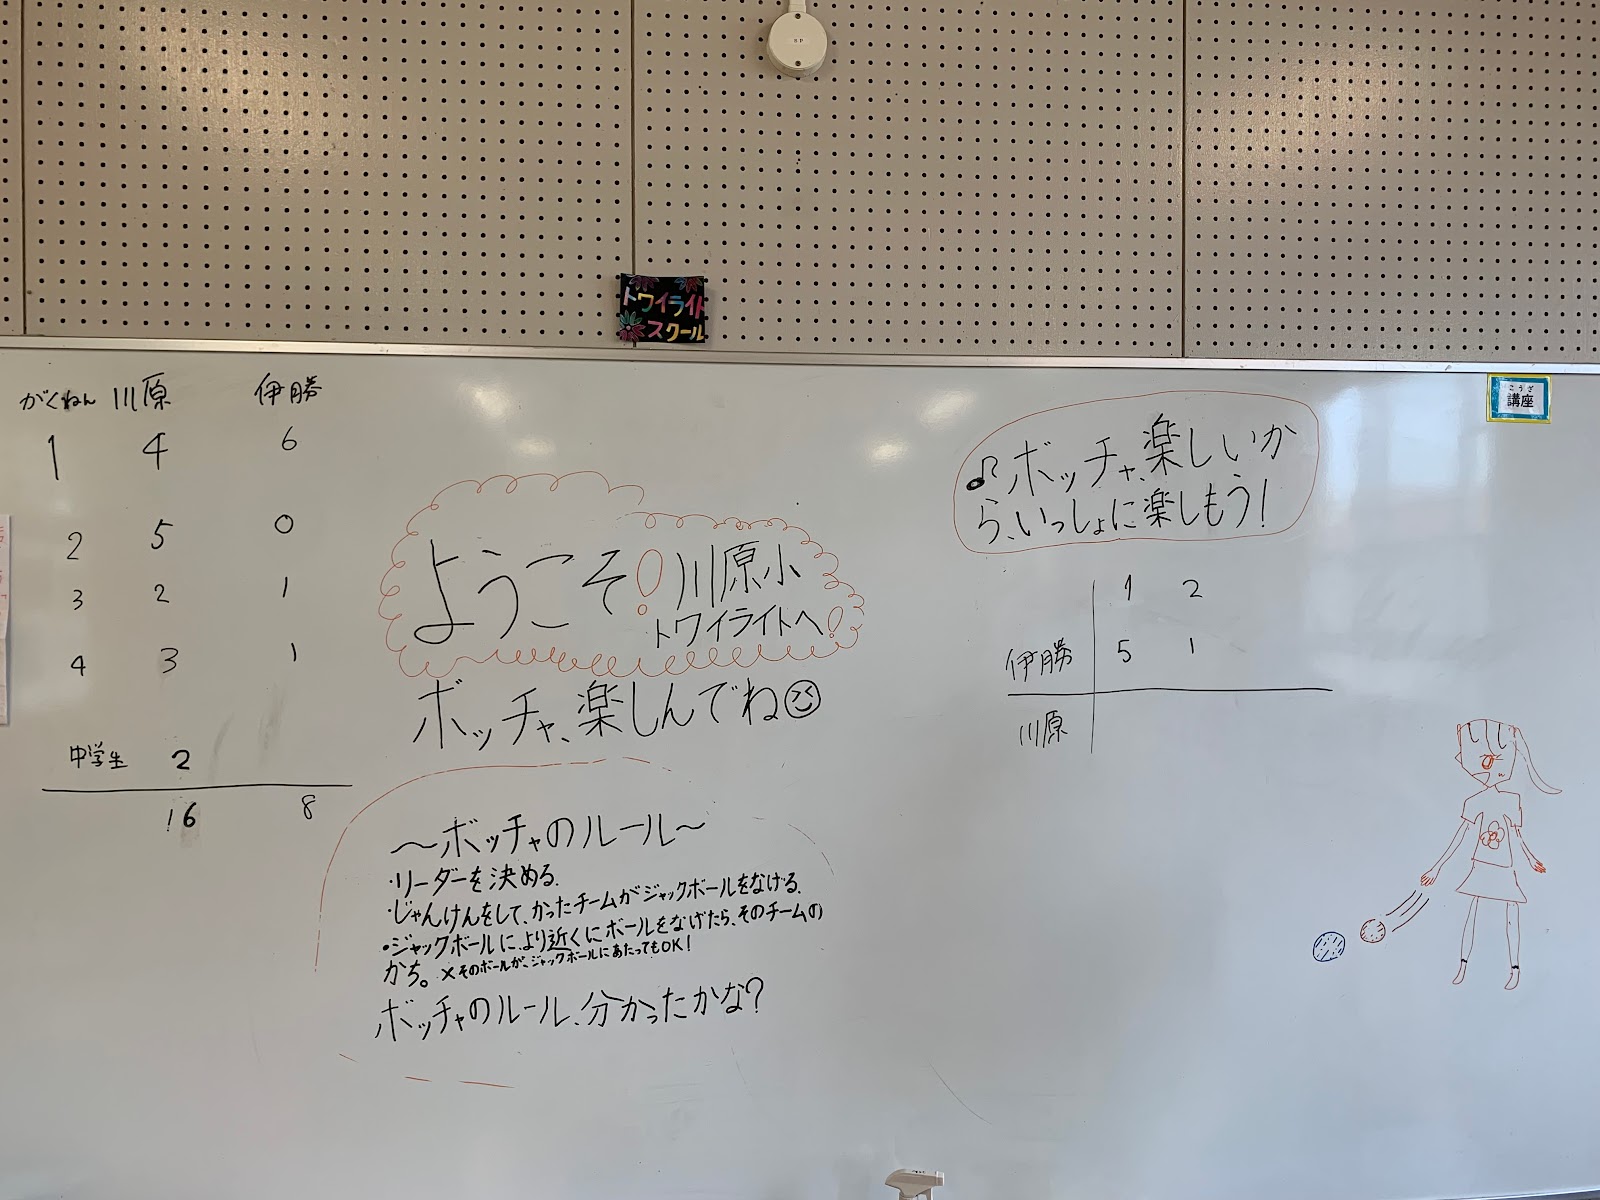 トワイライト
スクール
こうざ
講座
がくねん 川原 伊勝
1 4 6
2 5 0
3 2 1
4 3 1
中学生 2
16 8
ようこそ!川原小
トワイライトへ!
ボッチャ、楽しんでね
~ボッチャのルール~
・リーダーを決める.
・じゃんけんをして、かったチームがジャックボールをなげる.
・ジャックボールに、より近くにボールをなげたら、そのチームの
かち。×そのボールが、ジャックボールにあたってもOK!
ボッチャのルール、分かったかな?
♪ボッチャ、楽しいか
ら、いっしょに楽しもう!
1 2
伊勝 5 1
川原